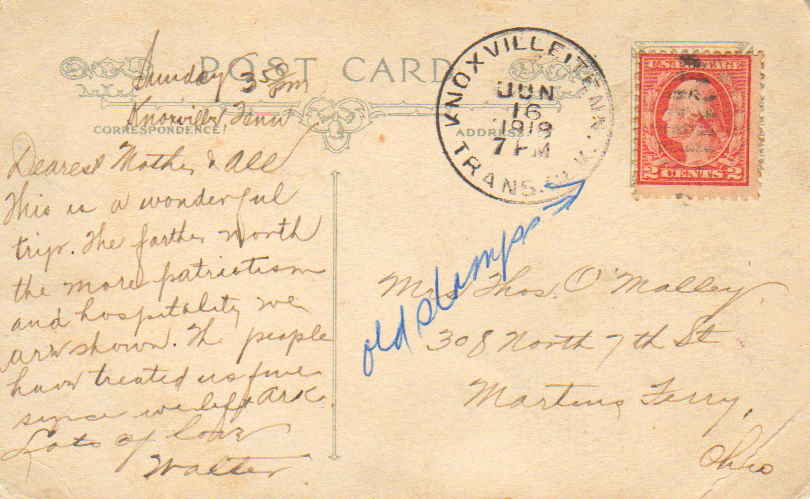 POST CARD
Sunday 3 58 pm
Knoxville, Tenn
CORRESPONDENCE
ADDRESS
Dearest Mother & All
This is a wonderful
trip. The farther North
the more patriotism
and hospitality we
are shown. The people
have treated us fine
since we left Ark.
Lots of love
Walter
KNOXVILLE, TENN.
JUN
16
1918
7 PM
TRANS. CLK.
U.S. POSTAGE
2 CENTS 2
old stamps
Mrs Thos. O'Malley
308 North 7th St
Martins Ferry,
Ohio